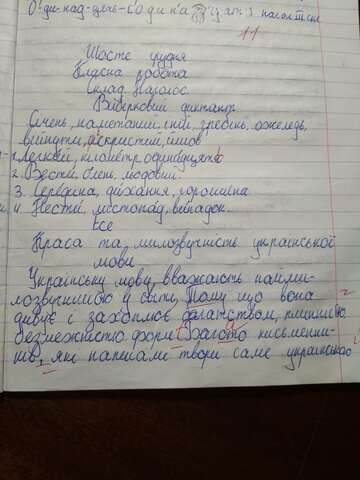 О! ди-над-цять-
11
Шосте грудня
Класна робота
Склад. Наголос.
Вибірковий диктант
Олень, наметаний, іній, гребінь, ожеледь,
війнути, іскристий, ішов
1. Легкий, кілометр, одинадцять
2. Вести, олень, медовий
3. Середина, дихання, горошина
4. Нести, листопад, випадок.
есе
Краса та милозвучність української
мови
Українську мову вважають найми-
лозвучнішою у світі. Тому що вона
дивує і захоплює багатством,
безмежністю форм. Багато письменни-
ків, які написали твори саме українською